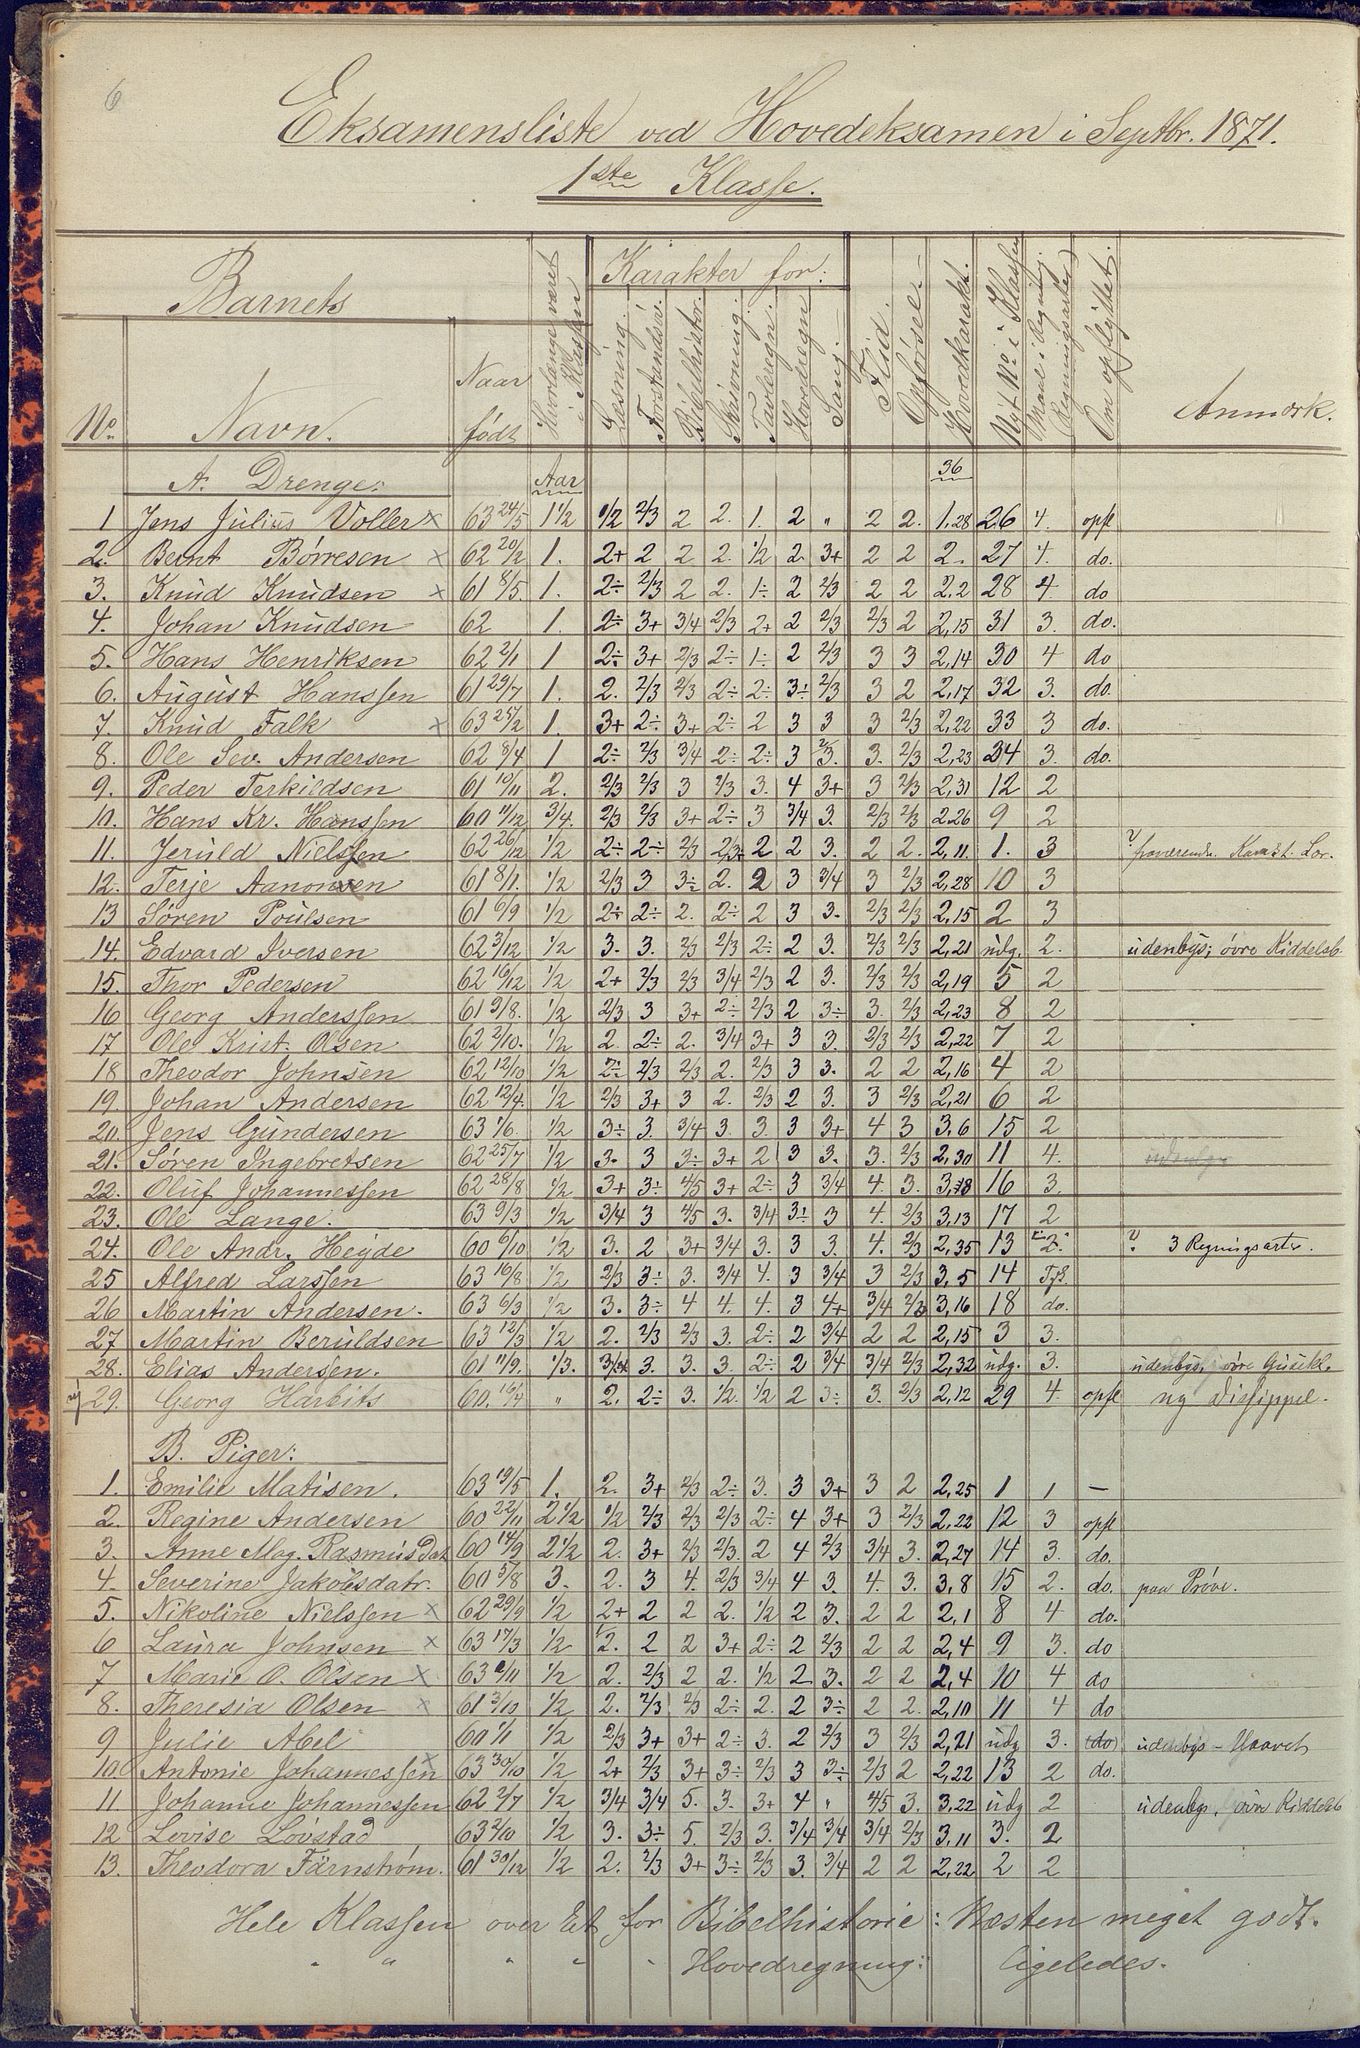 6
Eksamensliste ved Hovedeksamen i Septbr. 1871.
1ste Klasse.
Barnets
No. Navn. Naar født Hvorlænge været i Klassen Karakter for: Læsning. Forstandsøv. Bibelhistor. Skrivning. Tavleregn. Hovedregn Sang. Flid. Opførsel. Hovedkarakt. Nyt No i Klassen Maal i Regning. (Regningsarter) Om opflyttet. Anmærk.
A. Drenge: Aar 36
1 Jens Julius Voller x 63 24/5 1 1/2 1/2 2/3 2 2. 1. 2 " 2 2. 1,28 26 4. opfl
2. Bernt Börresen x 62 20/2 1. 2+ 2 2 2. 1/2 2. 3+ 2 2 2. 27 4. do.
3. Knud Knudsen x 61 8/5. 1. 2÷ 2/3 2 2. 1÷ 2 2/3 2 2 2.2 28 4. do
4. Johan Knudsen 62 1. 2÷ 3+ 3/4 2/3 2+ 2 2/3 2/3 2 2,15 31 3. do.
5. Hans Henriksen 62 2/11 1 2÷ 3+ 2/3 2÷ 1÷ 2 2/3 3 3 2,14 30 4 do
6. August Hanssen 61 29/7 1. 2. 2/3 2/3 2÷ 2÷ 3÷ 2/3 3 2 2,17 32 3. do.
7. Knud Falk x 63 25/2 1. 3+ 2÷ 3+ 2÷ 2 3 3 3 2/3 2,22 33 3 do.
8. Ole Sev. Andersen 62 8/4 1 2÷ 2/3 3/4 2÷ 2÷ 3 2/3. 3. 2/3 2,23 34 3. do.
9. Peder Terkildsen 61 10/11 2. 2/3 2/3 3 2/3 3. 4 3+ 3 2/3 2,31 12 2
10. Hans Kr. Hanssen 60 11/12 3/4. 2/3 2/3 3+ 2÷ 3 3/4 3. 2/3 2/3 2,26 9 2
11. Jeruld Nielssen 62 26/12 1/2 2÷ 2÷ 2/3 2/3+ 2 2 3. 2 2. 2,11. 1. 3
12. Terje Aanonsen 61 8/1. 1/2 2/3 3 3÷ 2. 2 3 3/4 3 2/3 2,28 10 3
13 Sören Poulsen 61 6/9 1/2 2÷ 2÷ 2. 2÷ 2 3 3. 2/3 2/3 2,15 2 3
14. Edvard Iversen 62 3/12 1/2 3. 3. 2/3 2/3 2÷ 2 3. 2/3 2/3 2,21 udg. 2. udenbys; övre Kiddelsb
15. Thor Pedersen 62 16/12 1/2 2+ 2/3 2/3 3/4 2/3 2 3. 2/3 2/3 2,19 5 2
16 Georg Anderssen 61 9/8. 1/2 2/3 3 3+ 2÷ 2/3 2 3÷ 3. 2/3 2,23 8 2
17 Ole Krist. Olsen 62 2/10. 1/2 2. 2÷ 2. 3/4 3+ 3 3. 2/3 2/3 2,22 7 2
18 Theodor Johnsen 62 12/10 1/2 2÷ 2/3 2/3 2. 2/3 3 3. 2 2 2,16 4 2
19. Johan Andersen 62 12/4. 1/2 2/3 3+ 3 2. 2/3 2 3. 3 2/3 2,21 6 2
20. Jens Gundersen 63 1/6. 1/2 3÷ 3. 3/4 3. 3. 3 3+ 4 3 3.6 15 2
21. Sören Ingebretsen 62 25/7 1/2 3. 3 3÷ 3+ 2 3 3. 3. 2/3 2,30 11 4.
22. Oluf Johannessen 62 28/8 1/2 3+ 3÷ 4/5 3+ 2÷ 3 3/4 4. 3. 3,18 16 3.
23. Ole Lange. 63 9/3 1/2 3/4 3 4/5 3. 3/4 3÷ 3 4. 2/3 3,13 17 2
24. Ole Andr. Heyde 60 6/10 1/2 3. 2 3+ 3/4 3. 3 3. 4. 2/3 2,35 13 2. 3 Regningsarter.
25 Alfred Larssen 63 16/8 1/2 2/3 3÷ 3. 3/4 4. 3 3/4 3 2/3 3,5 14
26 Martin Andersen. 63 6/3 1/2 3. 3÷ 4 4. 4. 3 4+ 3/4 2/3 3,16 18 do.
27 Martin Beruldsen 63 12/3 1/2 2. 2/3 2/3 3. 2÷ 2 3/4 2 2 2,15 3 3.
28. Elias Andersen. 61 11/9. 1/3. 3/4 3. 3. 3. 2÷ 2 3/4 3/4 2/3 2,32 udg. 3. udenbys, övre
29. Georg Harbits 60. 16/4 " 2. 2÷ 3. 1/2. 1/2 2 3÷ 3. 2/3 2,12 29 4. opfl ny Disippel.
B. Piger:
1. Emilie Matisen. 63 19/5 1. 2. 3+ 2/3 2÷ 3. 3 3+ 3 2 2,25 1 1 —
2. Regine Andersen 60 22/11 2 1/2 1/2 2/3 2/3 2/3 2÷ 4 3+ 3 2/3 2,22 12 3 opfl
3. Anne Mag. Rasmusdat 60 14/9 2 1/2 2. 3+ 2/3 2/3. 2 4 2/3 3/4 3. 2,27 14 3. do.
4. Severine Jakobsdatr. 60 5/8 3. 2. 3 4. 2/3 3/4 4 3. 4. 3. 3,8 15 2. do. paa Pröve.
5. Nikoline Nielssen x 62 29/9 1/2 2+ 2 2 2. 1/2 2 3. 2 2 2,1 8 4 do.
6 Laura Johnsen x 63 17/3 1/2 2. 2 2 3+ 2÷ 2 2/3 2 2 2,4 9 3. do
7 Marie O. Olsen x 63 6/11 1/2 2. 2/3 2 2. 1/2 2 3. 2 2 2,4 10 4 do
8. Theresia Olsen x 61 3/10 1/2 2. 2/3 2/3 2÷ 2. 2 3÷ 2 2. 2,10 11 4 do
9 Julie Abel 60 1/1 1/2 2/3 3+ 3+ 2÷ 3. 2 2/3 3 2/3 2,21 udg 3. (do) udenbys –
10 Antonie Johannessen x 63 30/10 1/2 2+ 2/3 3+ 3÷ 2/3 3 3÷ 2/3 2 2,22 13 2 do.
11. Johanne Johannessen 62 2/7 1/2 3/4 3/4 5. 3. 3+ 4 " 4/5 3. 3,22 udg 2 udenbys, övre Kiddelsb
12 Lovise Lövstad 63 2/10 1/2 3. 3÷ 5. 2/3 3. 3/4 3/4 3/4 2/3 3,11 3. 2
13. Theodora Färnström. 61 30/12 1/2 2. 2/3 3+ 3÷ 2/3 3. 3/4 2 2 2,22 2 2
Hele Klassen over Et for Bibelhistorie: Næsten meget godt.
" " " " " Hovedregning: ligeledes.